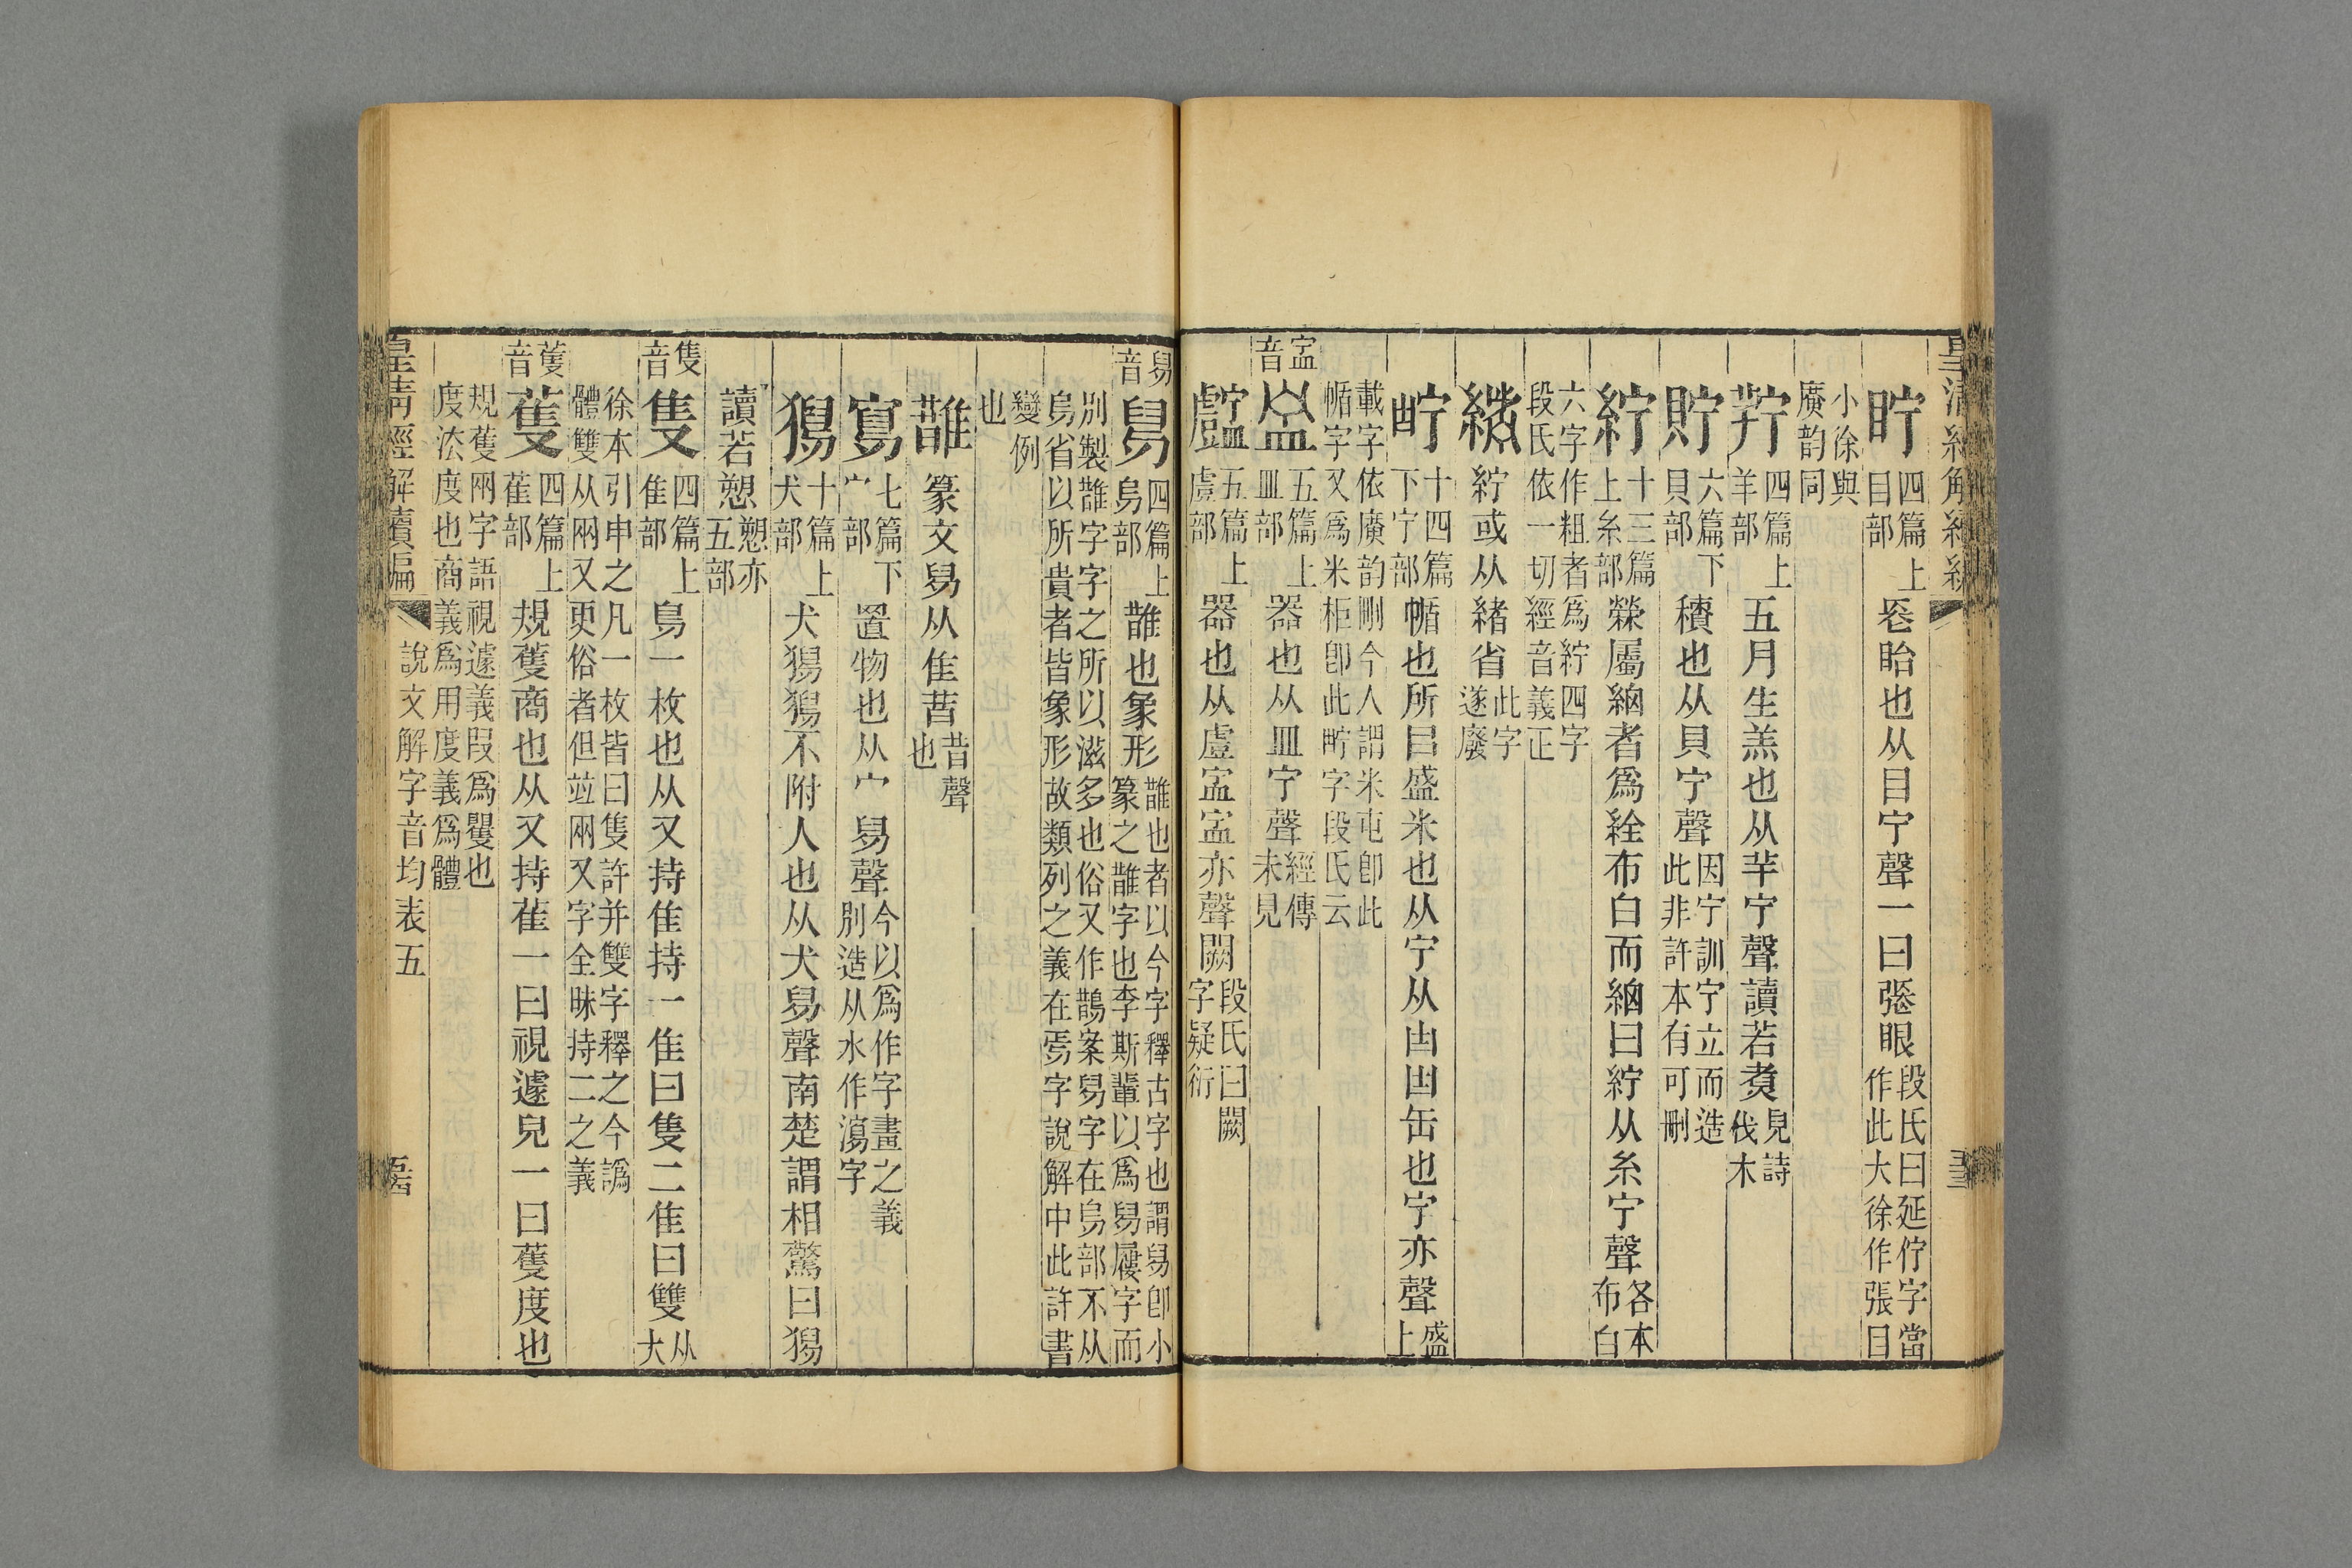 眝四篇上目部長眙也从目宁聲一曰張眼段氏曰延佇字當作此大徐作張目
小徐與廣韵同
羜四篇上羊部五月生羔也从羊宁聲讀若煑見詩伐木
貯六篇下貝部積也从貝宁聲因宁訓宁立而造此非許本有可刪
紵十三篇上糸部檾屬細者爲絟布白而細曰紵从糸宁聲各本布白
六字作粗者爲紵四字段氏依一切經音義正
紵或从緒省此字遂廢
十四篇下宁部㡒也所㠯盛米也从宁从甾甾缶也宁亦聲盛上
載字依廣韵刪今人謂米㡒卽此㡒字又爲米柜卽此字段氏云
音
五篇上皿部器也从皿宁聲經傳未見
五篇上䖒部器也从䖒𥁊𥁊亦聲闕段氏曰闕字疑衍
舄音
舄四篇上烏部䧿也象形䧿也者以今字釋古字也謂舄卽小篆之䧿字也李斯輩以爲舄屨字而
別製䧿字字之所以滋多也俗又作鵲案舄字在烏部不从烏省以所貴者皆象形故類列之義在焉字說解中此許書
變例也
䧿篆文舄从隹昔昔聲也
寫七篇下宀部置物也从宀舄聲今以爲作字畫之義別造从水作瀉字
獡十篇上犬部犬獡獡不附人也从犬舄聲南楚謂相驚曰獡
讀若愬愬亦五部
隻音
隻四篇上隹部鳥一枚也从又持隹持一隹曰隻二隹曰雙从大
徐本引申之凡一枚皆曰隻許并雙字釋之今譌體雙从兩又更俗者但竝兩又字全昧持二之義
蒦音
蒦四篇上萑部規蒦商也从又持萑一曰視遽皃一曰蒦度也
規蒦兩字語視遽義叚爲矍也度法度也商義爲用度義爲體
皇清經解續編 說文解字音均表五